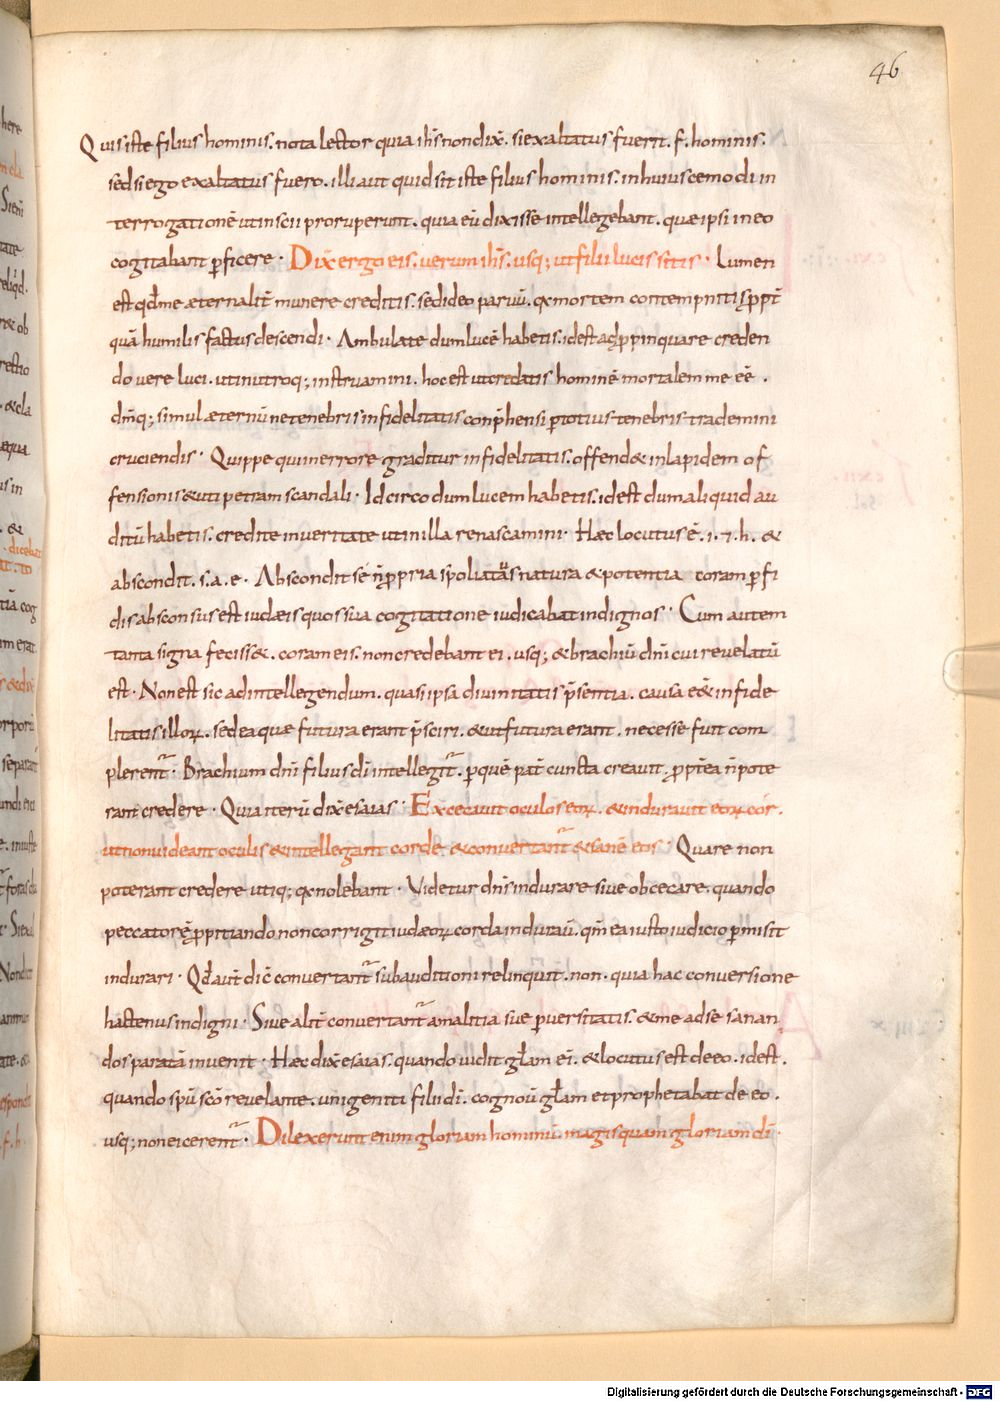 46
Quis iste filius hominis. nota lector quia ihs non dix̄. si exaltatus fuerit. f. hominis.
sed si ego exaltatus fuero. illi aut quid sit iste filius hominis. in huiuscemodi in
terrogationē ut inscii proruperunt. quia eū dixisse intellegebant. quæ ipsi in eo
cogitabant ꝑficere · Dix̄ ergo eis. verum ihs. usq; ut filii lucis sitis · Lumen
est qđ me æternalit̄ munere creditis. sed ideo parvū. qx mortem contempnitis ꝓpt̄
quā humilis factus descendi · Ambulate dum lucē habetis. id est adꝓpinquare creden
do vere luci. ut in utroq; instruamini. hoc est ut credatis hominē mortalem me eē.
dm̄q; simul æternū ne tenebris infidelitatis conp̄hensi ꝑ totius tenebris trademini
cruciendis · Quippe qui in errore graditur infidelitatis. offend& in lapidem of
fensionis & uti petram scandali · Idcirco dum lucem habetis. id est dum aliquid au
ditū habetis. credite in veritate ut in illa renascamini · Hæc locutus ē. i. 7. h. &
abscondit. s. a. e · Abscondit sē n̄ ꝓpria spoliatus natura & potentia coram ꝑfi
dis absconsus est iudæis quos sua cogitatione iudicabat indignos · Cum autem
tanta signa feciss&. coram eis. non credebant ei. usq; & brachiū dn̄i cui revelatū
est · Non est sic ad intellegendum. quasi ipsa divinitatis p̄sentia. causa eēt infide
litatis illoꝝ. sed ea que futura erant p̄sciri. & ut futura erant. necesse fuit com
plerent̄ · Brachium dn̄i filius dī intellegit̄. ꝑ quē pat̄ cuncta creavit. ꝓpt̄ea n̄ pote
rant credere · Quia iterū dix̄ esaias · Excecavit oculos eoꝝ. & induravit eoꝝ cor.
ut non videant oculis & intellegant corde. & convertant̄ & sanē eos · Quare non
poterant credere utiq; qx nolebant · Videtur dn̄s indurare sive obcecare. quando
peccatorē ꝓpitiando non corrigit iudæoꝝ corda indurav̄. qm̄ ea iusto iudicio ꝑmisit
indurari · Qđ aut̄ dic̄ convertant̄ subauditioni relinquit. non · quia hac conversione
hactenus indigni · Sive alit̄ convertant̄ a malitia sue ꝑversitatis. & me ad se sanan
dos paratā invenit · Hæc dix̄ esaias. quando vidit głam eī. & locutus est de eo. id est.
quando spū scō revelante. unigeniti filii dī. cognov̄ głam et prophetabat de eo.
usq; non eicerent̄ · Dilexerunt enim gloriam hominū. magis quam gloriam dī ·
Digitalisierung gefördert durch die Deutsche Forschungsgemeinschaft - DFG